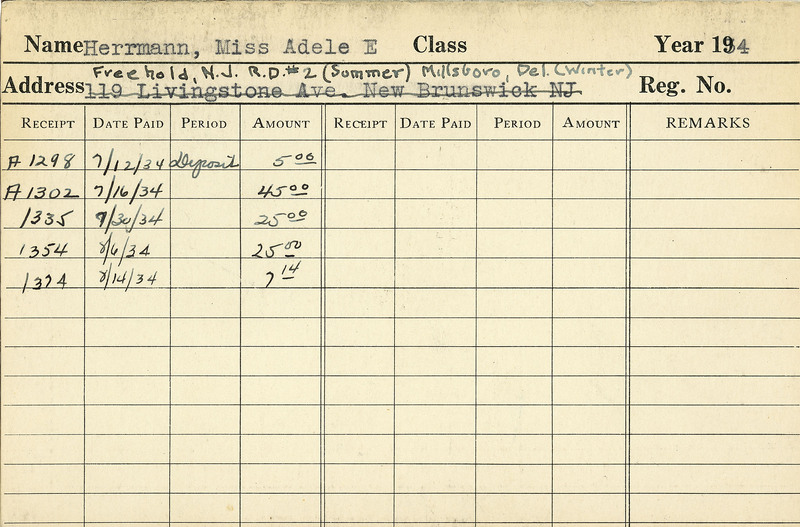 Name Herrmann, Miss Adele E Class Year 1934
Freehold, N.J. R.D.#2 (Summer) Millsboro, Del. (Winter)
Address 119 Livingstone Ave. New Brunswick NJ. Reg. No.
RECEIPT DATE PAID PERIOD AMOUNT RECEIPT DATE PAID PERIOD AMOUNT REMARKS
A 1298 7/12/34 deposit 5 00
A 1302 7/16/34 45 00
1335 7/30/34 25 00
1354 8/6/34 25 00
1374 8/14/34 7 14